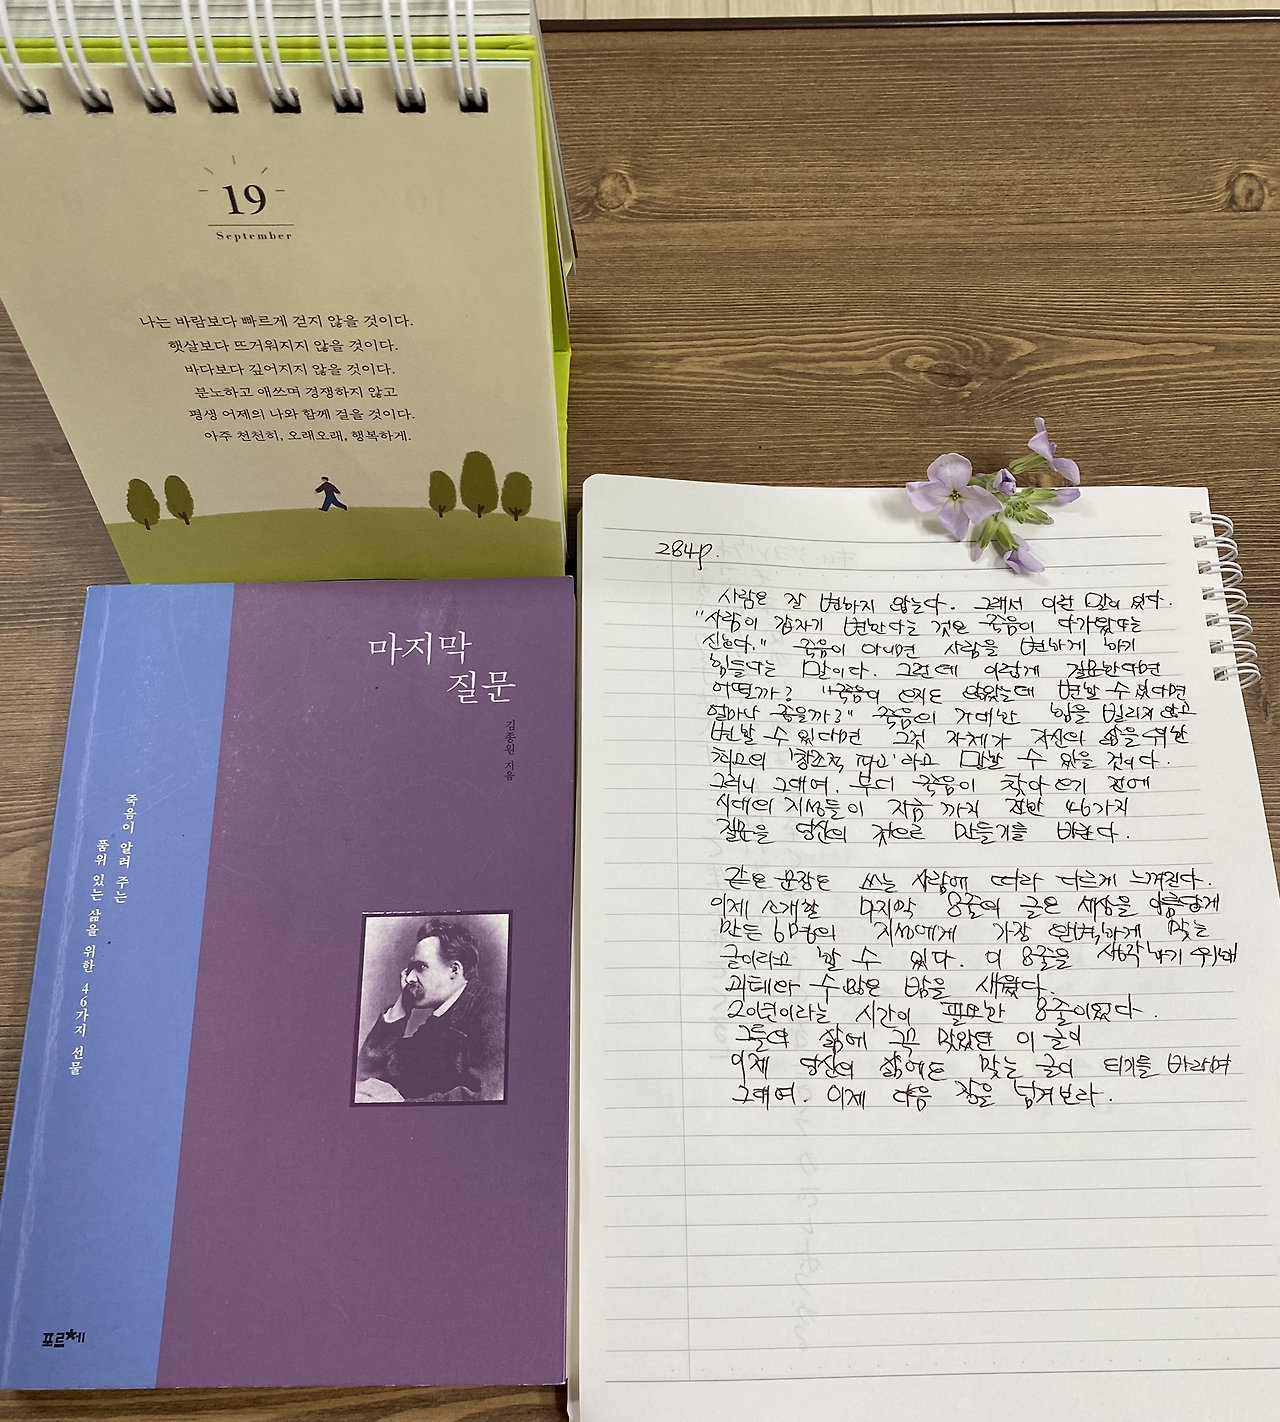 19
September
나는 바람보다 빠르게 걷지 않을 것이다.
햇살보다 뜨거워지지 않을 것이다.
바다보다 깊어지지 않을 것이다.
분노하고 애쓰며 경쟁하지 않고
평생 어제의 나와 함께 걸을 것이다.
아주 천천히, 오래오래, 행복하게.
마지막
질문
김종원 지음
죽음이 알려 주는
품위 있는 삶을 위한 46가지 선물
포르체
284p.
사람은 잘 변하지 않는다. 그래서 이런 말이 있다.
"사람이 갑자기 변한다는 것은 죽음이 다가왔다는
신호다." 죽음이 아니면 사람을 변하게 하기
힘들다는 말이다. 그런데 이렇게 질문한다면
어떨까? "죽음이 오지도 않았는데 변할 수 있다면
얼마나 좋을까?" 죽음의 거대한 힘을 빌리지 않고
변할 수 있다면 그것 자체가 자신의 삶을 위한
최고의 '창조적 파괴'라고 말할 수 있을 것이다.
그러니 그대여. 부디 죽음이 찾아오기 전에
시대의 지성들이 지금까지 전한 46가지
질문을 당신의 것으로 만들기를 바란다.
같은 문장도 쓰는 사람에 따라 다르게 느껴진다.
이제 소개할 마지막 8줄의 글은 세상을 아름답게
만든 6명의 지성에게 가장 완벽하게 맞는
글이라고 할 수 있다. 이 8줄을 생각하기 위해
괴테와 수많은 밤을 새웠다.
20년이라는 시간이 필요한 8줄이었다.
그들의 삶에 꼭 맞았던 이 글이
이제 당신의 삶에도 맞는 글이 되기를 바라며
그대여. 이제 다음 장을 넘겨보라.